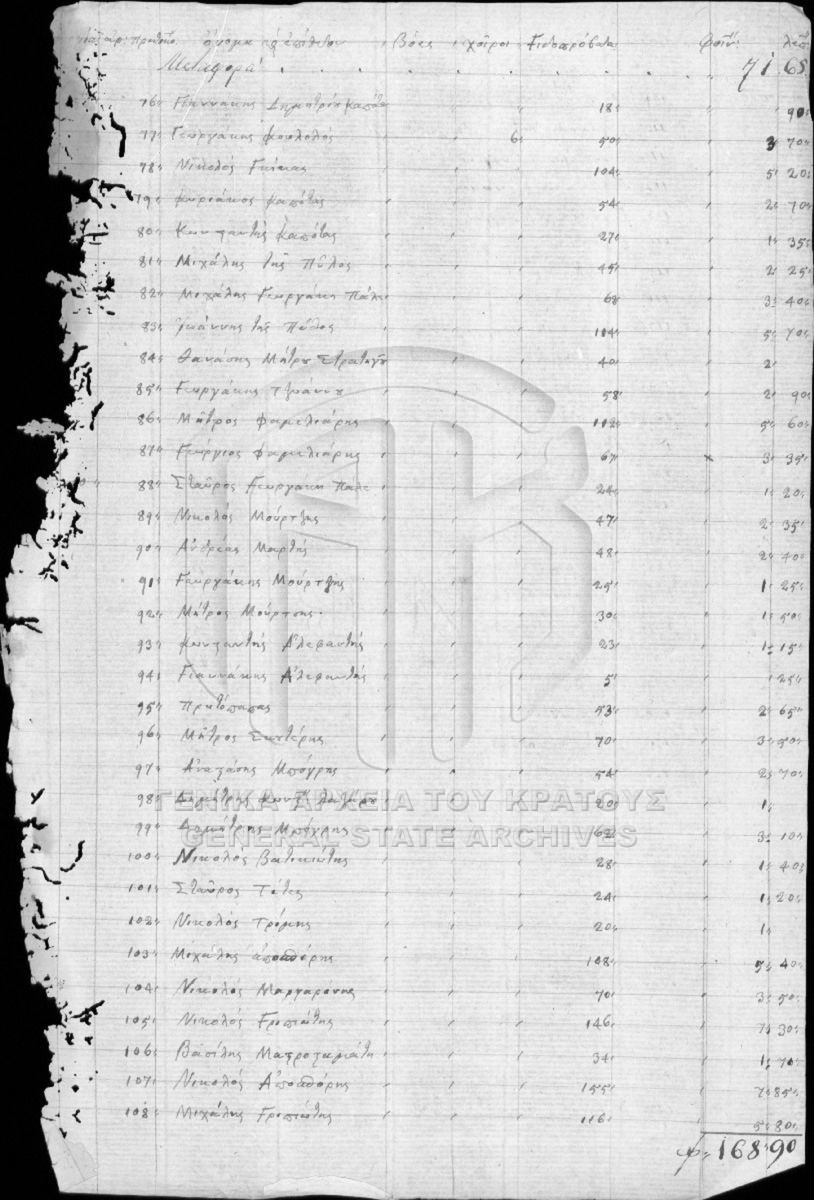 ὄνομα ἐπίθετον Βόες χοῖροι Γιδοπρόβατα Φοίν: λεπ
Μεταφορά 71 65
76 Γιαννάκης Δημητρίου Καπότα 18 90
77 Γεωργάκης 6 50 3 70
78 Νικολός Γκίκας 104 5 20
79 Κυριάκος Καπότας 54 2 70
80 Κωνσταντής Καπότας 27 1 35
81 Μιχάλης τῆς Πύλος 45 2 25
82 Μιχάλης Γεωργάκη Πάλε 68 3 40
83 Ἰωάννης τῆς 114 5 70
84 Θανάσης Μήτρου Στρατηγοῦ 40 2
85 Γεωργάκης Τζοάννου 58 2 90
86 Μῆτρος Φαμελιάρης 112 5 60
87 Γεώργιος Φαμελιάρης 67 3 35
88 Σταῦρος Γεωργάκη Πάλε 24 1 20
89 Νικολός Μούρτζης 47 2 35
90 Ἀνδρέας Μαρθής 48 2 40
91 Γεωργάκης Μούρτζης 25 1 25
92 Μῆτρος Μούρτσης 30 1 50
93 Κωνσταντής Ἀλεφαντής 23 1 15
94 Γιαννάκης Ἀλεφαντής 5 25
95 Πρωτόπαπας 53 2 65
96 Μῆτρος Σωτέρης 70 3 50
97 Ἀναστάσης Μπόγρης 54 2 70
98 Δημήτρης 20 1
ΓΕΝΙΚΑ ΑΡΧΕΙΑ ΤΟΥ ΚΡΑΤΟΥΣ
99 Δημήτρης Μπόγρης 62 3 10
GENERAL STATE ARCHIVES
100 Νικολός Βατικιώτης 28 1 40
101 Σταῦρος Τότες 24 1 20
102 Νικολός Τρόμπης 20 1
103 Μιχάλης 108 5 40
104 Νικολός Μαργαρώνης 70 3 50
105 Νικολός Γροπιώτης 146 7 30
106 Βασίλης Μαστροσταμάτη 34 1 70
107 Νικολός 155 7 85
108 Μιχάλης Γροπιώτης 116 5 80
φ 168 90